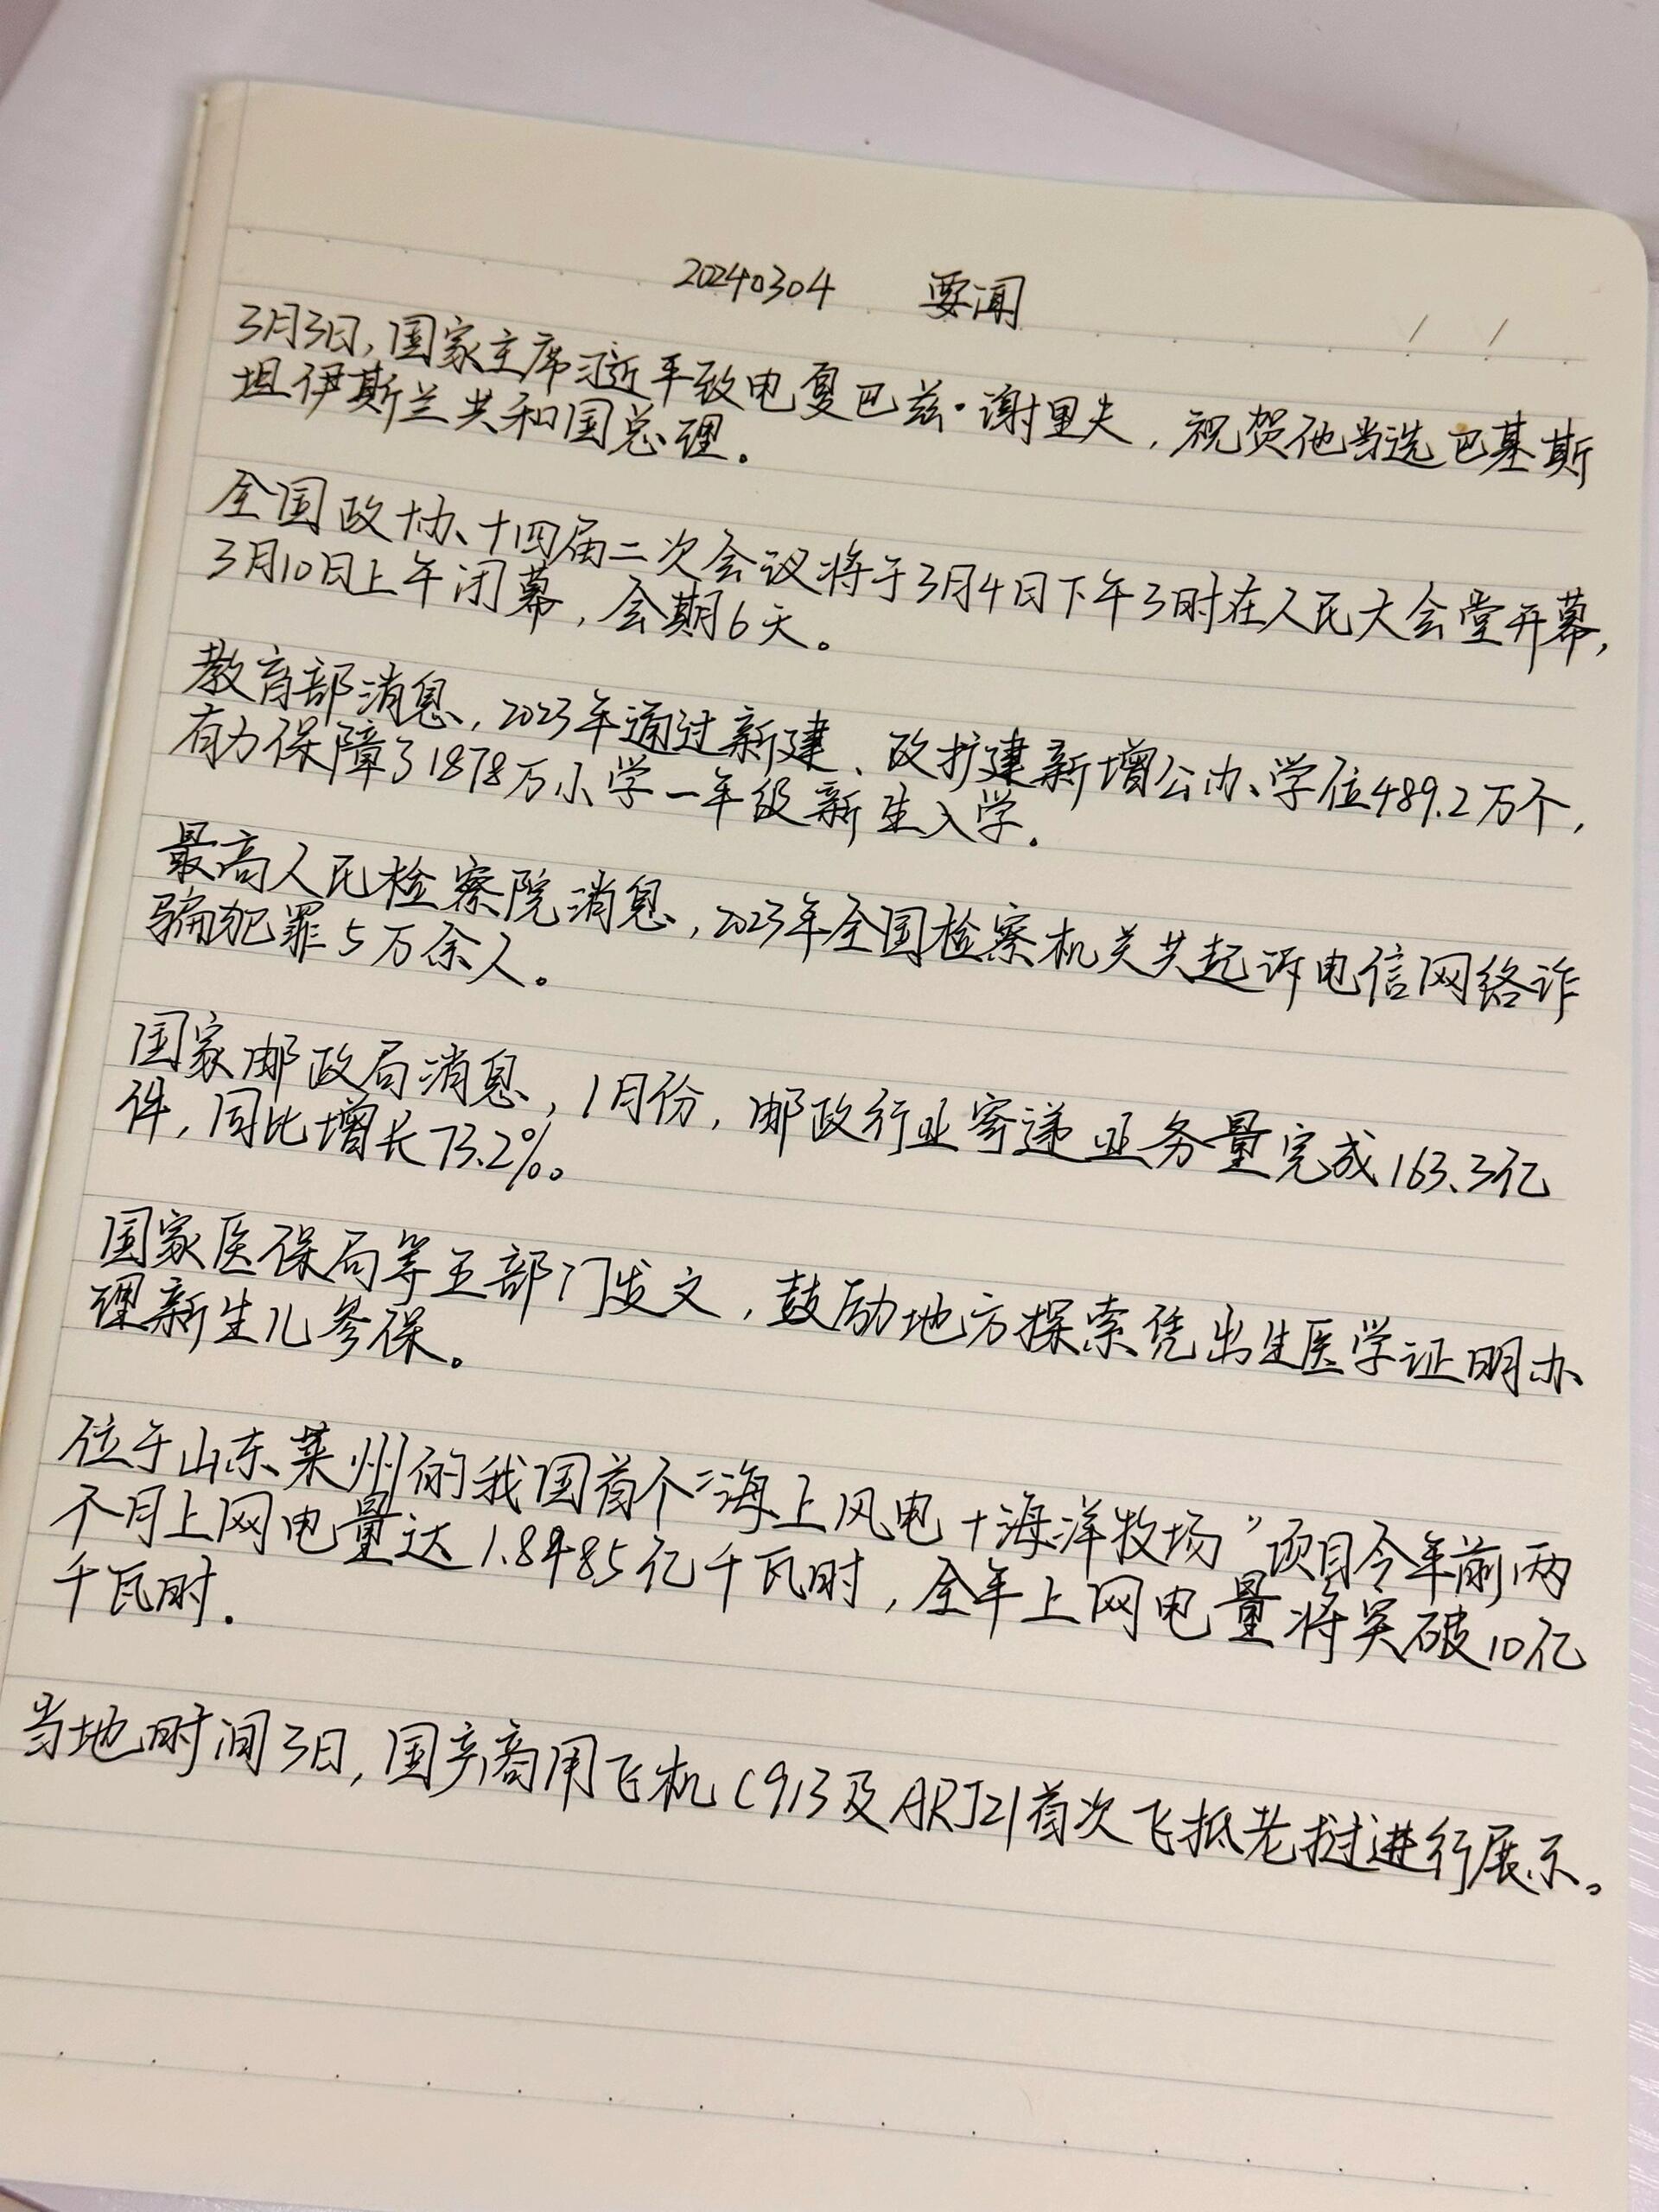 20240304 要闻
3月3日,国家主席习近平致电夏巴兹·谢里夫,祝贺他当选巴基斯
坦伊斯兰共和国总理。
全国政协十四届二次会议将于3月4日下午3时在人民大会堂开幕,
3月10日上午闭幕,会期6天。
教育部消息,2023年通过新建、改扩建新增公办学位489.2万个,
有力保障了1878万小学一年级新生入学.
最高人民检察院消息,2023年全国检察机关共起诉电信网络诈
骗犯罪5万余人。
国家邮政局消息,1月份,邮政行业寄递业务量完成163.3亿
件,同比增长73.2%。
国家医保局等五部门发文,鼓励地方探索凭出生医学证明办
理新生儿参保。
位于山东莱州的我国首个“海上风电+海洋牧场”项目今年前两
个月上网电量达1.8485亿千瓦时,全年上网电量将突破10亿
千瓦时.
当地时间3日,国产商用飞机C913及ARJ21首次飞抵老挝进行展示。